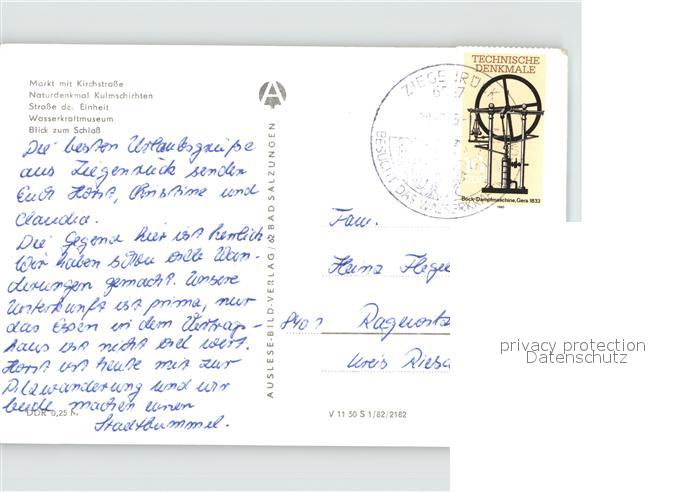 Markt mit Kirchstraße
Naturdenkmal Kulmschichten
Straße der Einheit
Wasserkraftmuseum
Blick zum Schloß
Die besten Urlaubsgrüße
aus Ziegenrück senden
Euch Horst, Christine und
Claudia.
Die Gegend hier ist herrlich
Wir haben schon viele Wan-
derungen gemacht. Unsere
Unterkunft ist prima, nur
das Essen in dem Vertrags-
haus ist nicht viel wert.
Horst ist heute mit zur
Pilzwanderung und wir
beide machen einen
Stadtbummel.
DDR 0,25 M
AUSLESE-BILD-VERLAG/62 BAD SALZUNGEN
V 11 50 S 1/82/2182
ZIEGENRÜCK
BESUCHT DAS WASSERKRA
TECHNISCHE
DENKMALE
Bock-Dampfmaschine, Gera 1833
1985
Fam.
Heinz
8401
Kreis Riesa
privacy protection
Datenschutz